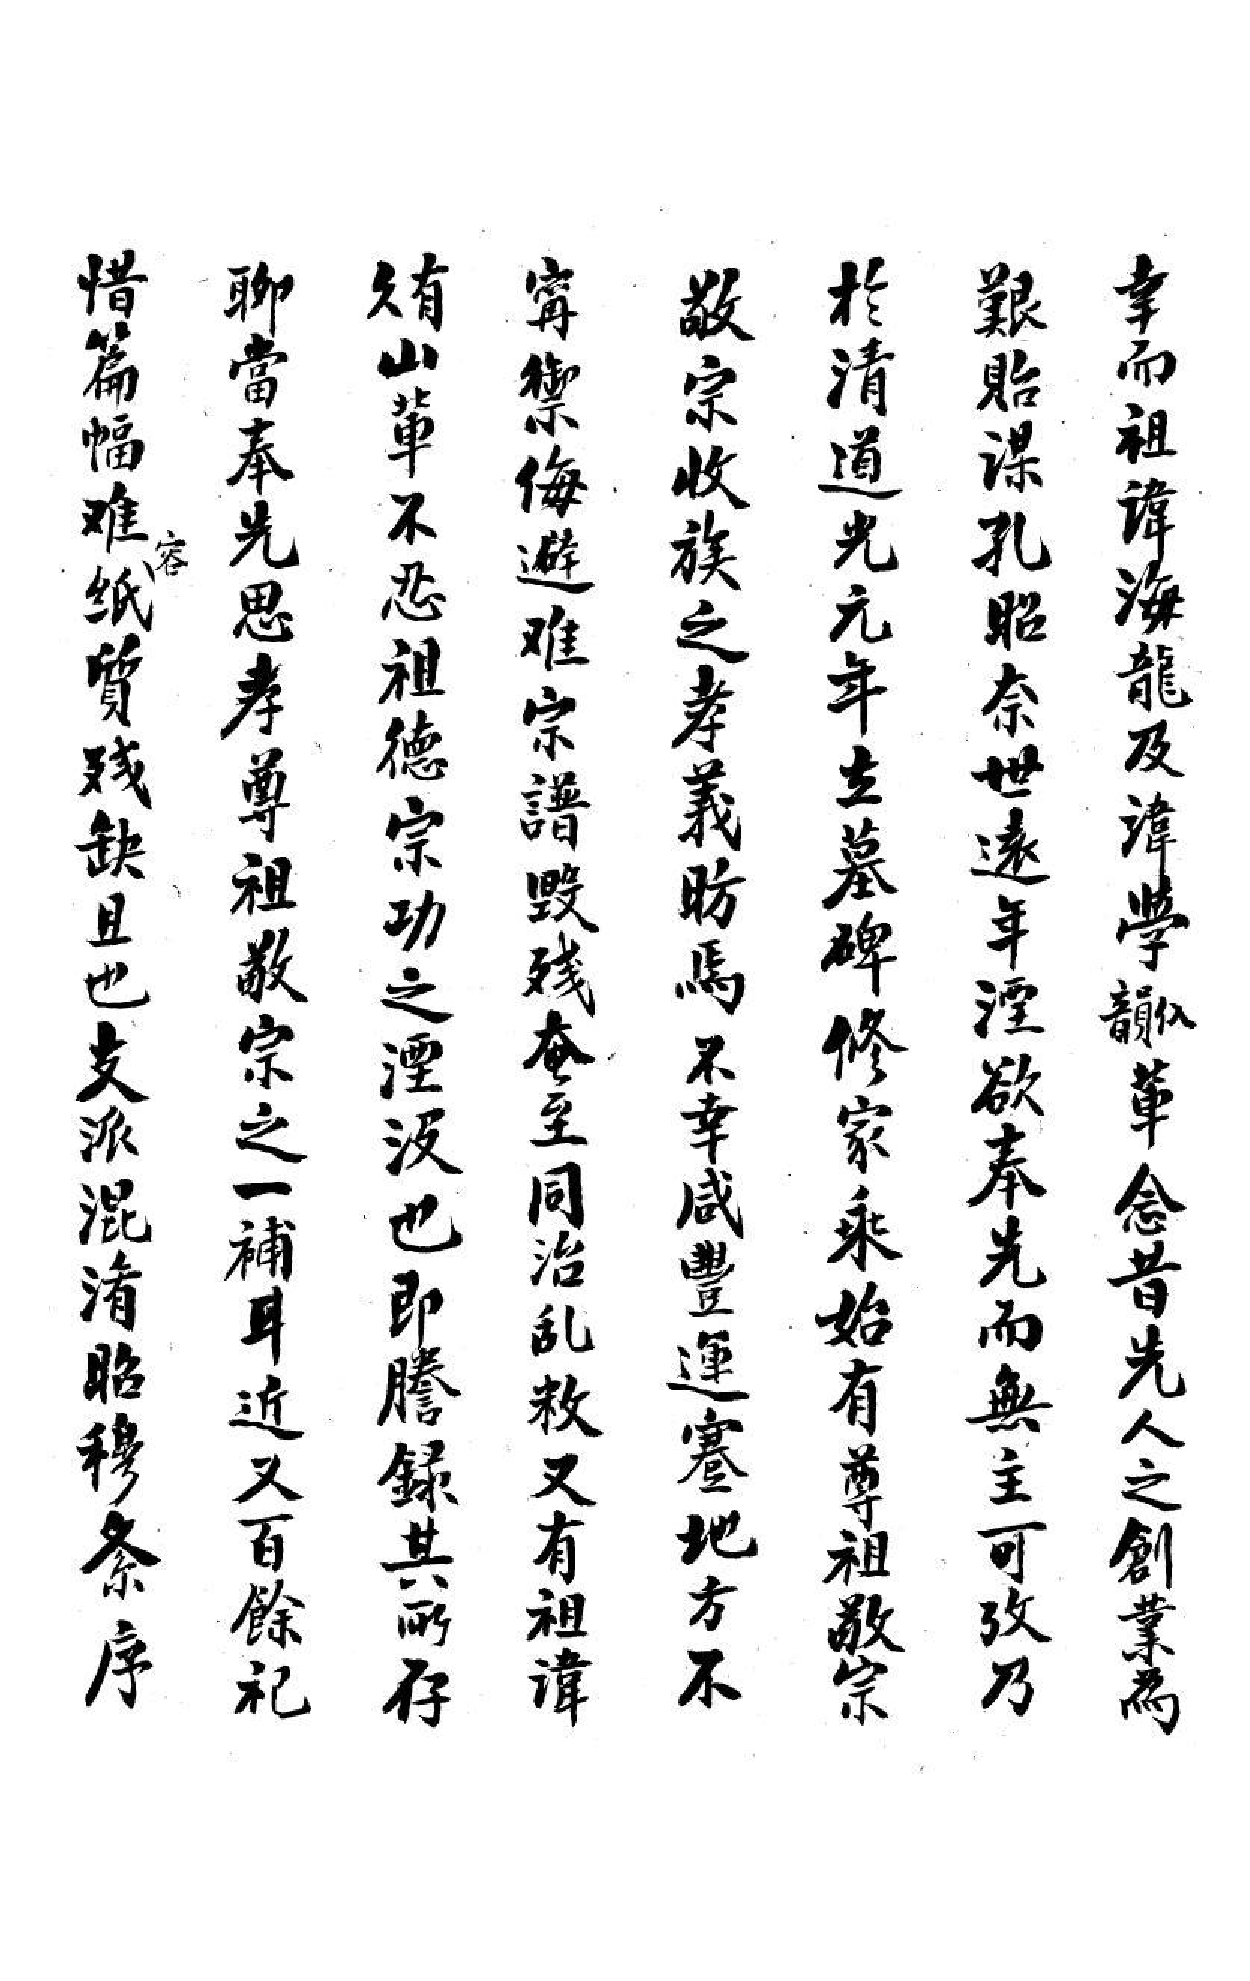 幸而祖諱海龍及諱學韻仪輩念昔先人之創業為
艱貽謀孔昭奈世遠年湮欲奉先而無主可攷乃
於清道光元年立墓碑修家乘始有尊祖敬宗
敬宗收族之孝義昉焉不幸咸豐運蹇地方不
寕禦侮避难宗譜毀残奄至同治乱敉又有祖諱
有久山輩不忍祖德宗功之湮没也即謄録其所存
聊當奉先思孝尊祖敬宗之一補耳近又百餘祀
惜篇幅难容紙質残缺且也支派混淆昭穆紊序